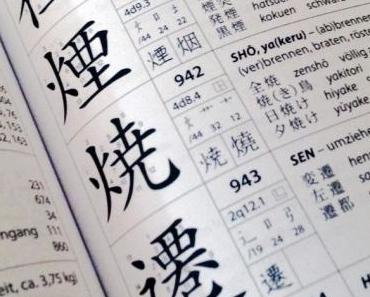 231
674
34
ngang 111
860
eit, ca. 3,75 kg)
煙
4d9.3
/44 24 22
煙 烟
発煙
黒煙
kokuen schwarz
942
焼
4d8.4
/44 32 12
焼 燒
SHŌ, ya(keru) – (ab)brennen,
(ver)brennen, braten, röste
全焼 zenshō völlig
焼(き)鳥 yakitori
日焼け hiyake
夕焼け yūyake
943
遷
2q12.1
/19 24 28
遷
SEN – umziehe
変遷
左遷
遷都